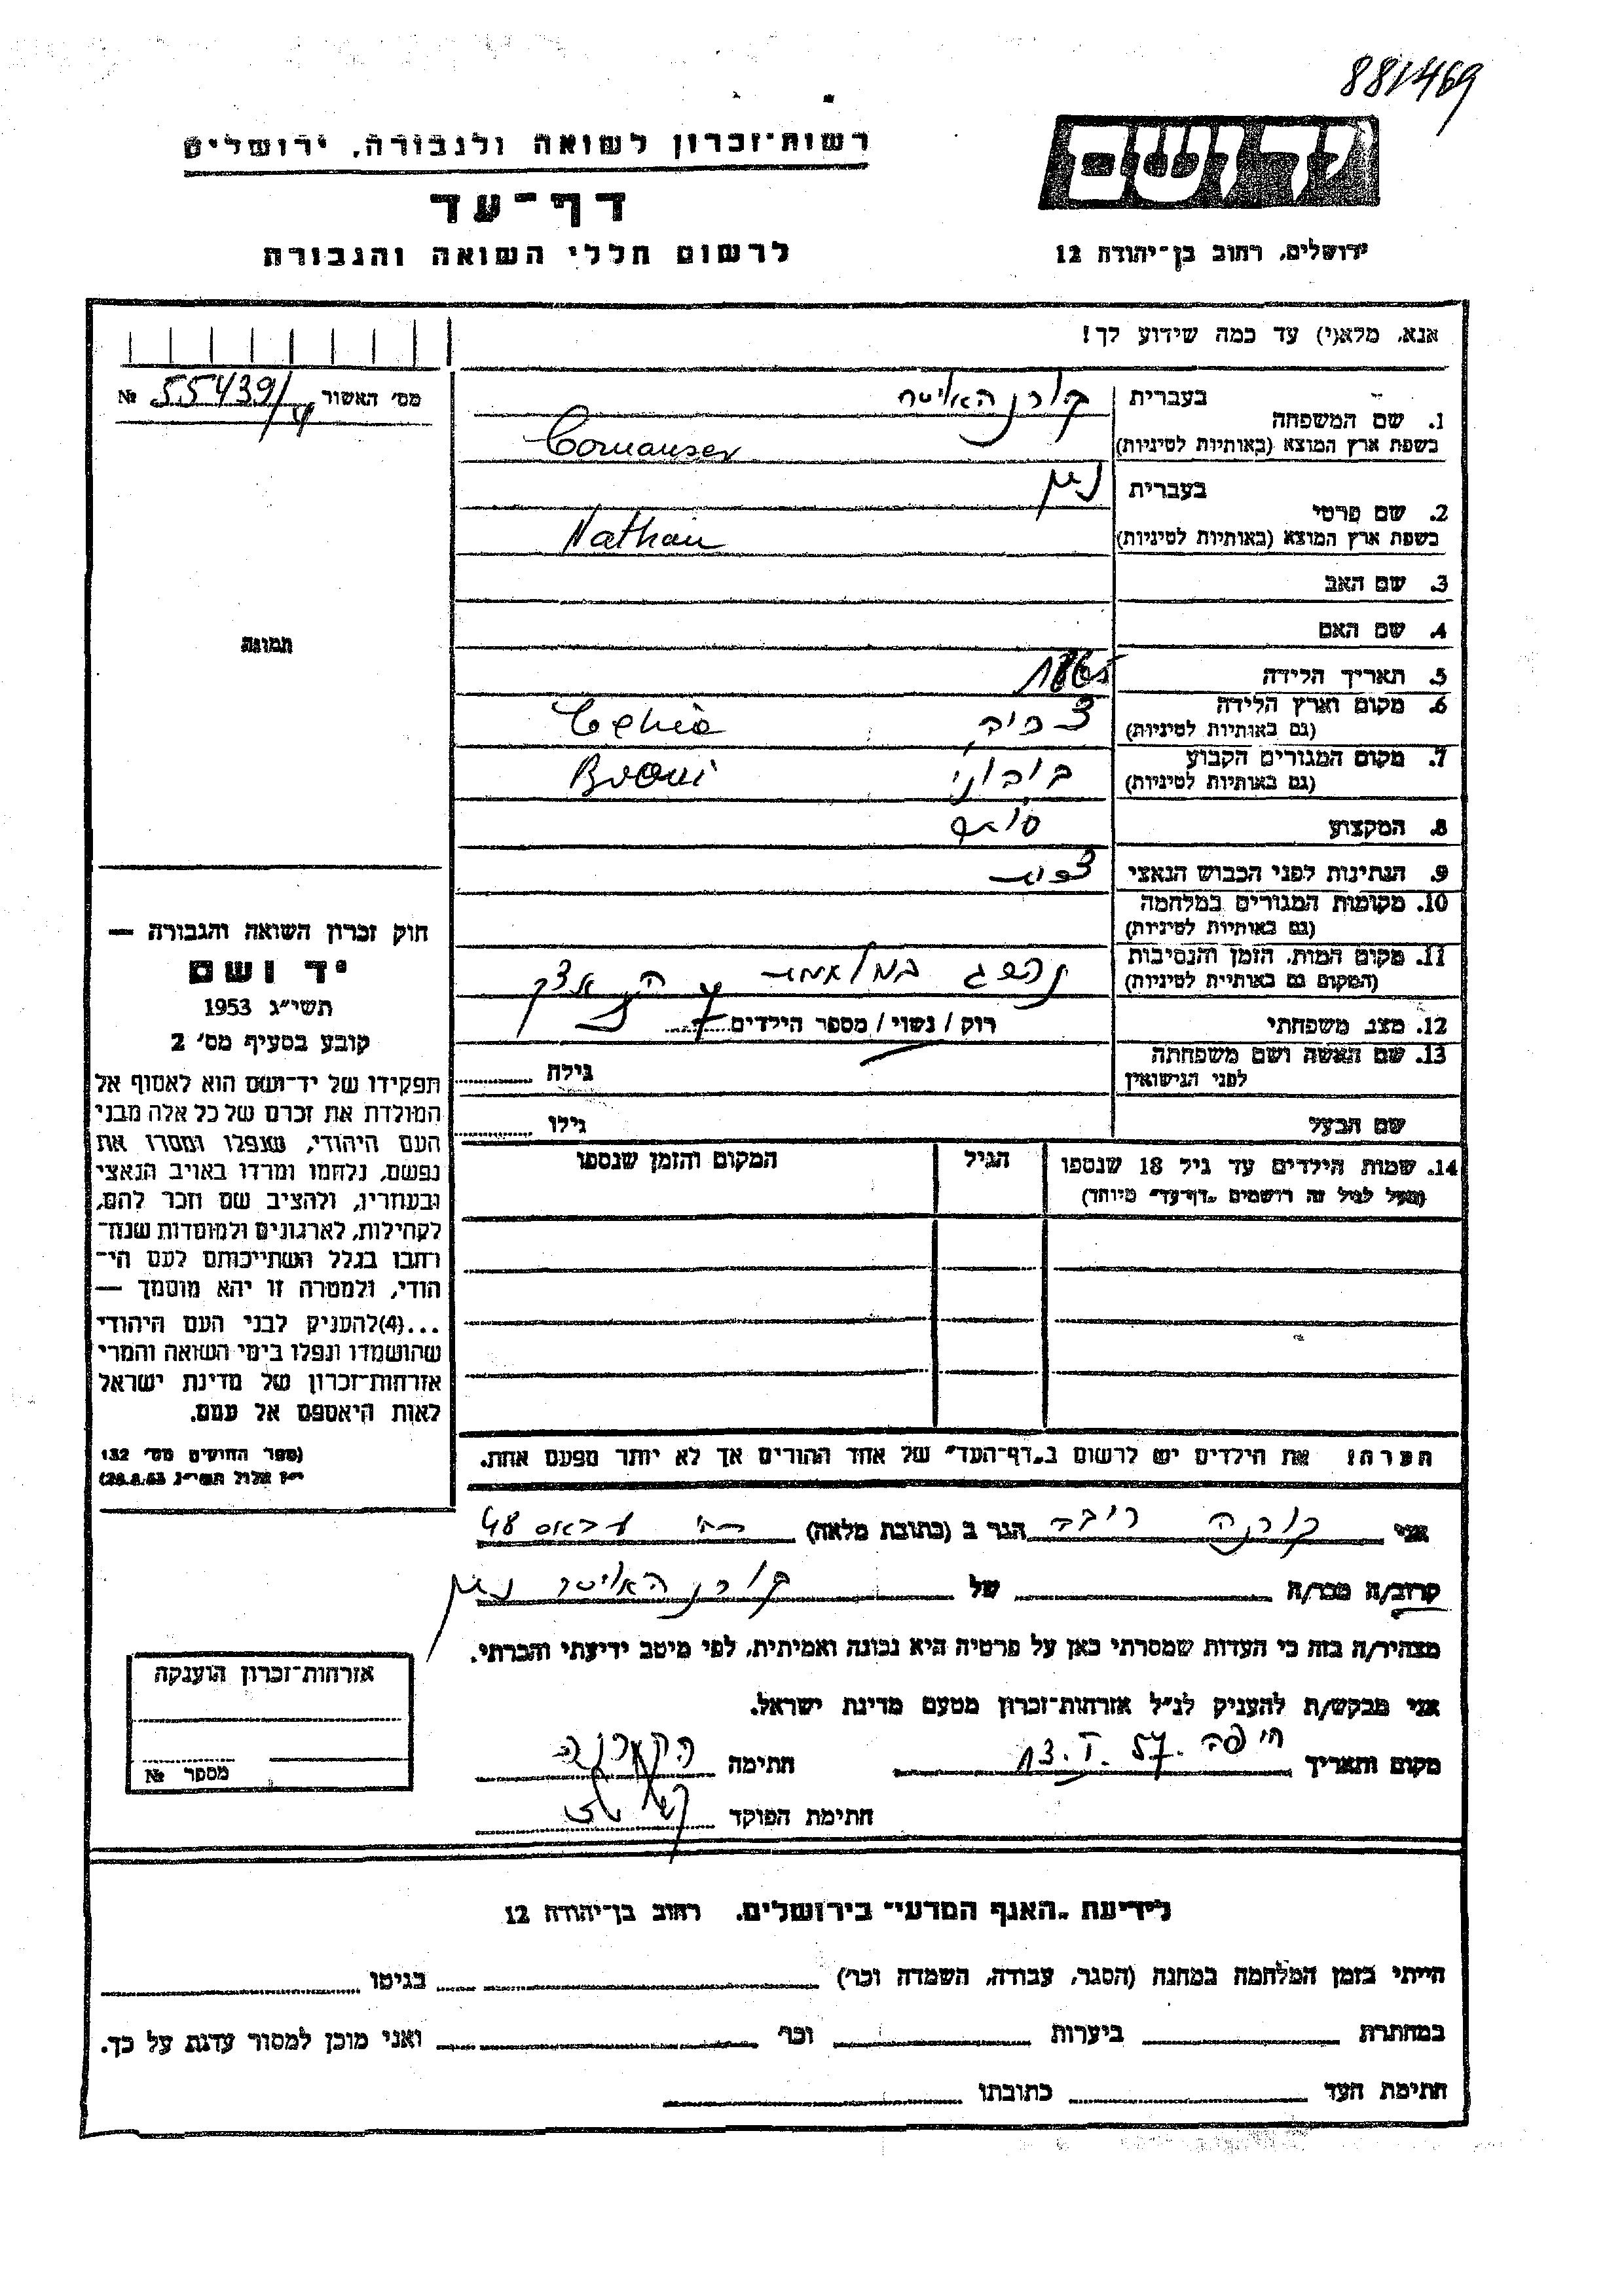 881469
רשות־זכרון לשואה ולגבורה, ירושלים
יד ושם
דף־עד
לרשום חללי השואה והגבורה
ירושלים, רחוב בן־יהודה 12
אנא, מלא(י) עד כמה שידוע לך!
מס' האשור 55439/4 №
1. שם המשפחה
בעברית קורן האויסר
בשפת ארץ המוצא (באותיות לטיניות) Cornauser
2. שם פרטי
בעברית נתן
בשפת ארץ המוצא (באותיות לטיניות) Nathan
3. שם האב
4. שם האם
תמונה
5. תאריך הלידה 1865
6. מקום וארץ הלידה
(גם באותיות לטיניות)
7. מקום המגורים הקבוע
(גם באותיות לטיניות)
8. המקצוע סוחר
9. הנתינות לפני הכבוש הנאצי
10. מקומות המגורים במלחמה
(גם באותיות לטיניות)
11. מקום המות, הזמן והנסיבות
(המקום גם באותיות לטיניות)
נהרג
12. מצב משפחתי רוק / נשוי / מספר הילדים 7
13. שם האשה ושם משפחתה
לפני הנישואין
גילה
שם הבעל
גילו
14. שמות הילדים עד גיל 18 שנספו
(מעל לגיל זה רושמים "דף־עד" מיוחד)
הגיל
המקום והזמן שנספו
הערה! את הילדים יש לרשום ב"דף־העד" של אחד ההורים אך לא יותר מפעם אחת.
חוק זכרון השואה והגבורה —
יד ושם
תשי"ג 1953
קובע בסעיף מס' 2
תפקידו של יד־ושם הוא לאסוף אל
המולדת את זכרם של כל אלה מבני
העם היהודי, שנפלו ומסרו את
נפשם, נלחמו ומרדו באויב הנאצי
ובעוזריו, ולהציב שם וזכר להם,
לקהילות, לארגונים ולמוסדות שנח־
רבו בגלל השתייכותם לעם הי־
הודי, ולמטרה זו יהא מוסמך —
...(4)להעניק לבני העם היהודי
שהושמדו ונפלו בימי השואה והמרי
אזרחות־זכרון של מדינת ישראל
לאות היאספם אל עמם.
(ספר החוקים מס' 132
י"ז אלול תשי"ג 28.8.53)
אני קורנה ריבה הגר ב (כתובת מלאה) עבאס 48
קרוב/ה מכר/ה של קורן האויסר נתן
מצהיר/ה בזה כי העדות שמסרתי כאן על פרטיה היא נכונה ואמיתית, לפי מיטב ידיעתי והכרתי.
אני מבקש/ת להעניק לנ"ל אזרחות־זכרון מטעם מדינת ישראל.
מקום ותאריך חיפה 13.I.57 חתימה
חתימת הפוקד
אזרחות־זכרון הוענקה
מספר №
לידיעת "האגף המדעי" בירושלים, רחוב בן־יהודה 12
הייתי בזמן המלחמה במחנה (הסגר, עבודה, השמדה וכו') בגיטו
במחתרת ביערות וכו' ואני מוכן למסור עדות על כך.
חתימת העד כתובתו